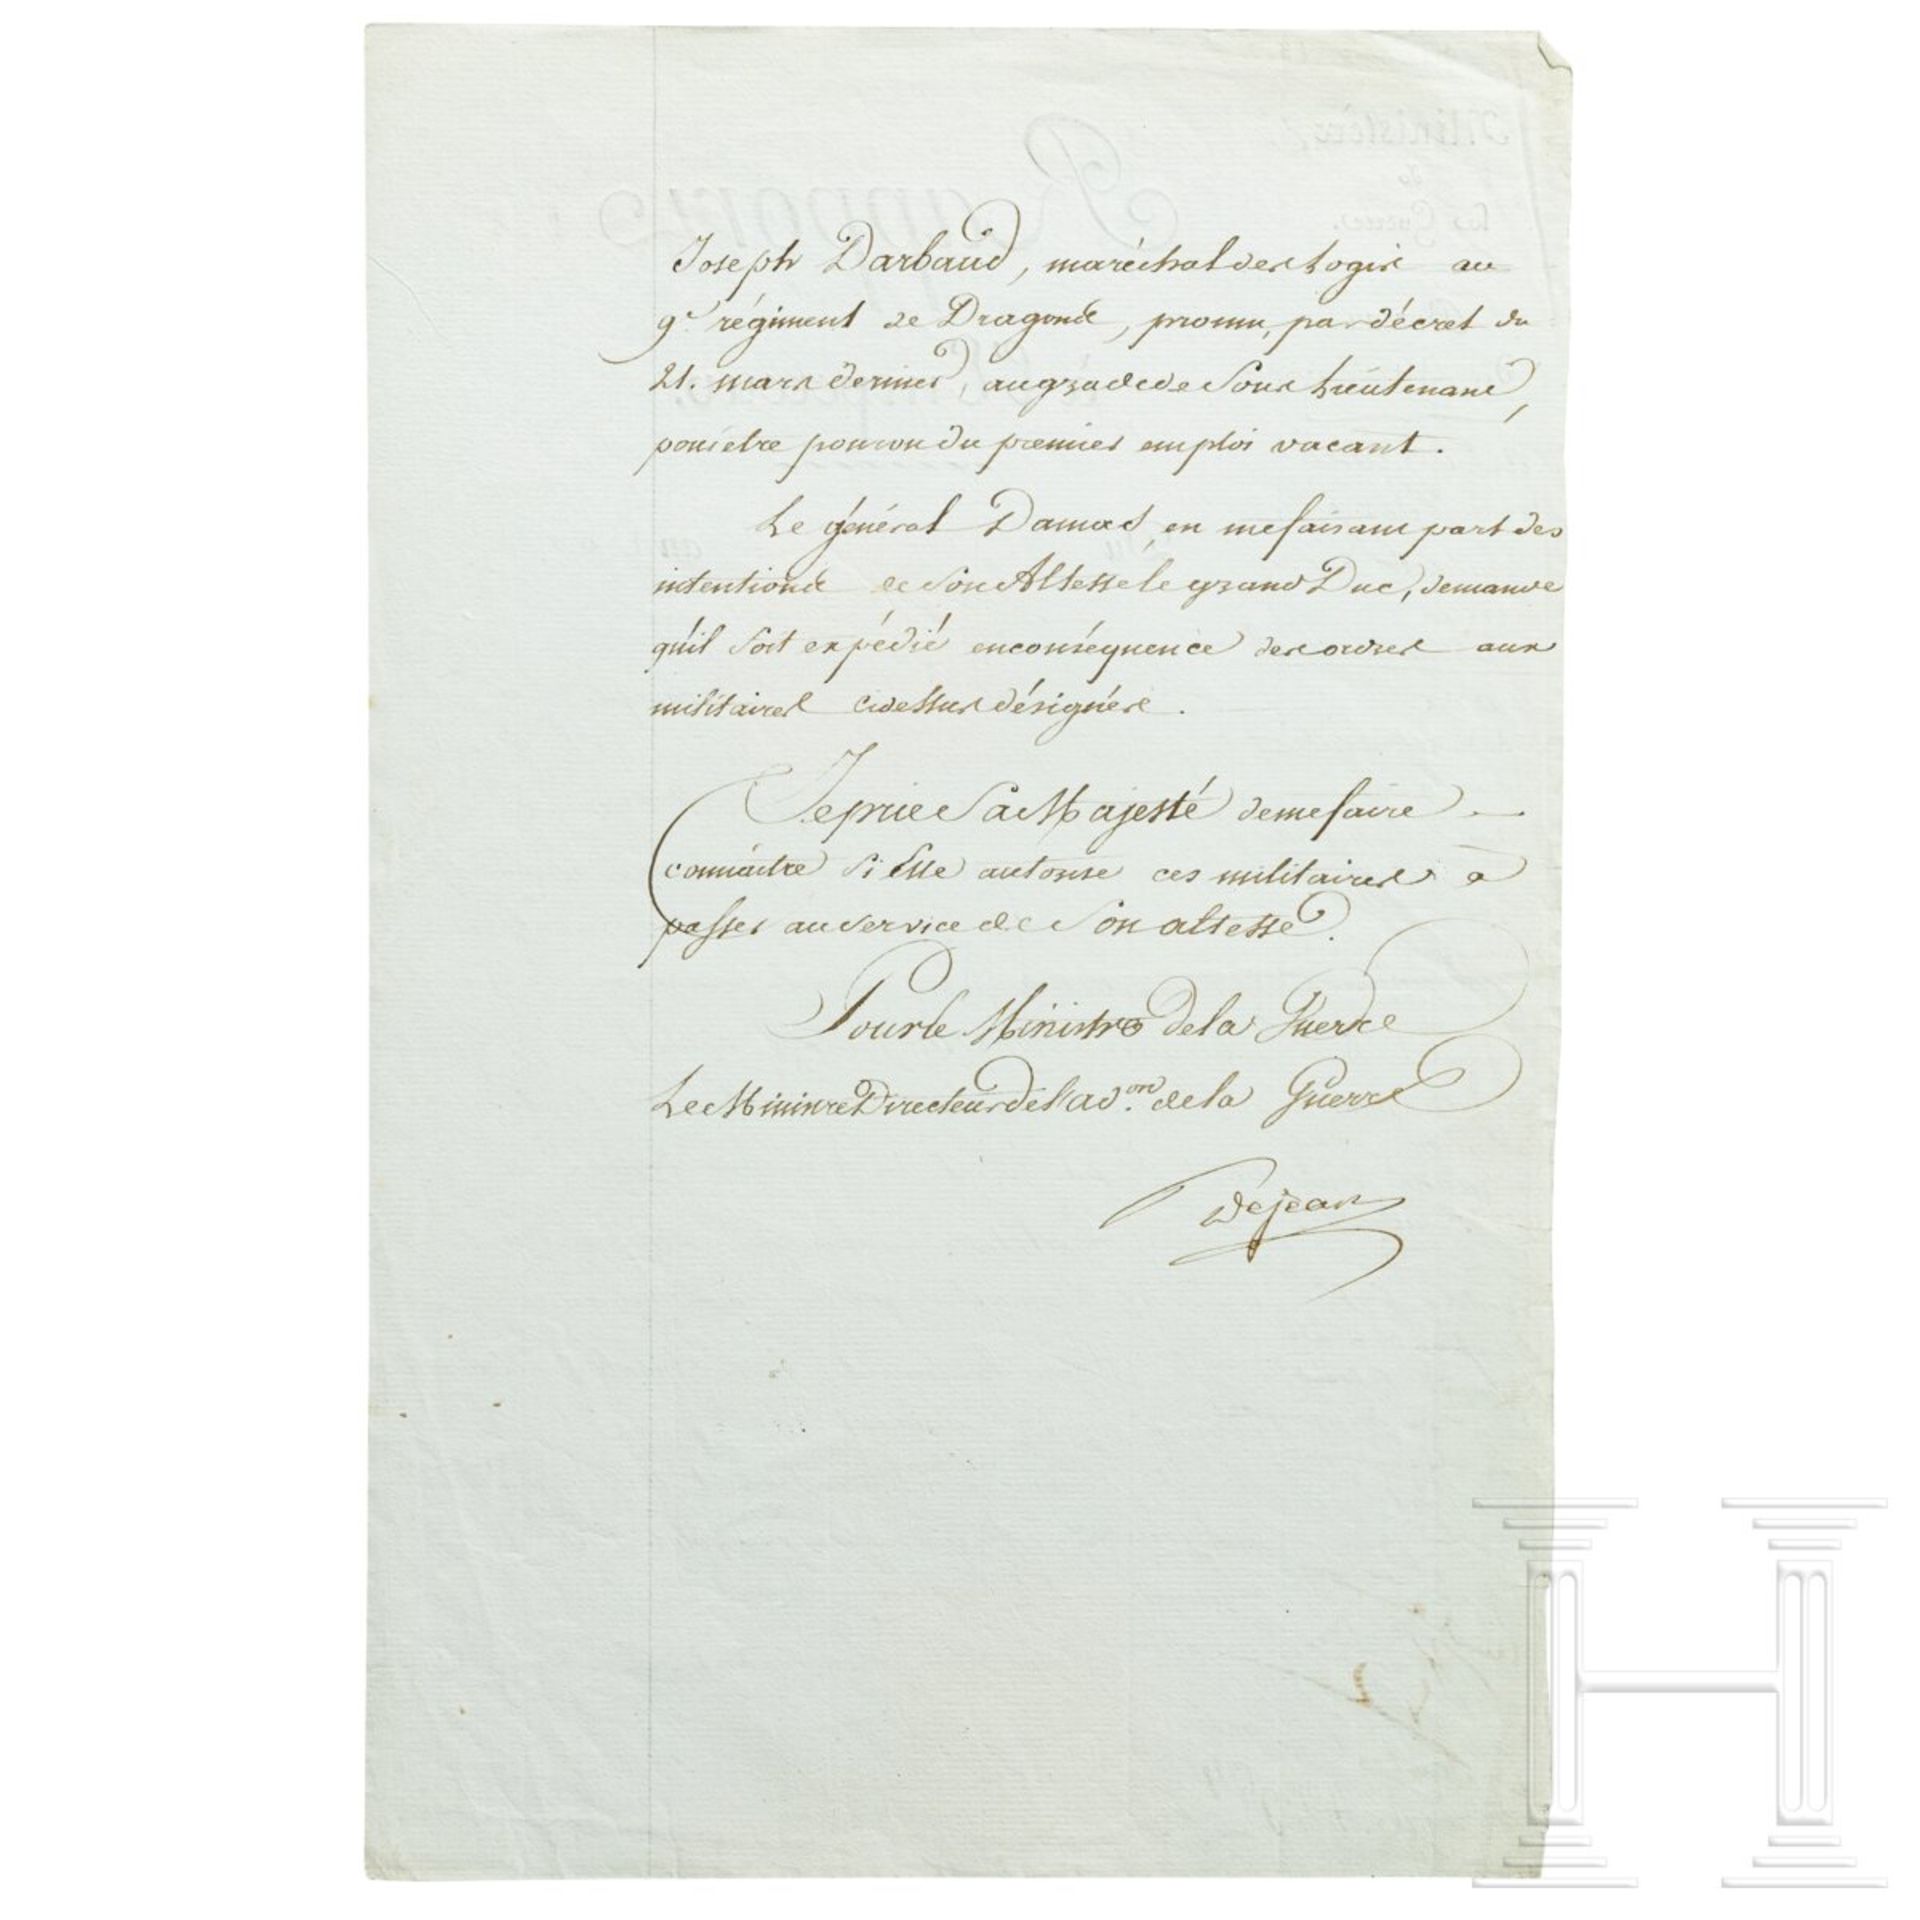 Joseph Darbaud, maréchal des logis au
9e. régiment de Dragons, promu, par décret du
21. mars dernier, au grade de Sous Lieutenant,
pour être pourvu du premier emploi vacant.
Le général Damas, en me faisant part des
intentions de Son Altesse le grand Duc, demande
qu'il soit expédié en conséquence des ordres aux
militaires cidessus désignés.
Je prie Sa Majesté de me faire
connaitre si Elle autorise ces militaires à
passer au service de Son altesse.
Pour le Ministre de la Guerre
Le Ministre Directeur de l'ad.on de la Guerre
Dejean
H